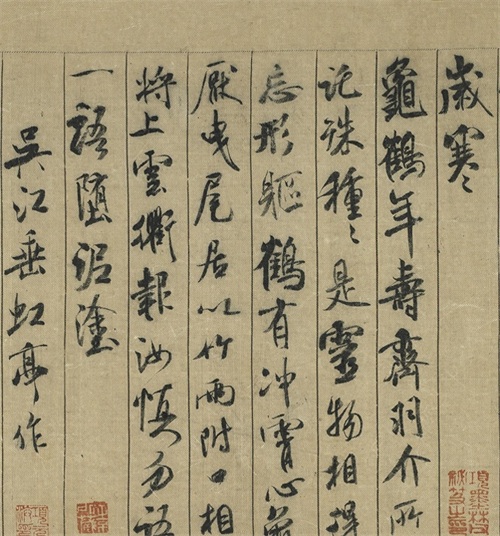 歲寒〻
龜鶴年壽齊羽介所
託殊種〻是靈物相得
忘形軀鶴有冲霄心龜
厭曳尾居以竹兩附口相
將上雲衢報汝慎勿語
一語墮泥塗
吳江垂虹亭作
項墨林父
祕笈之印